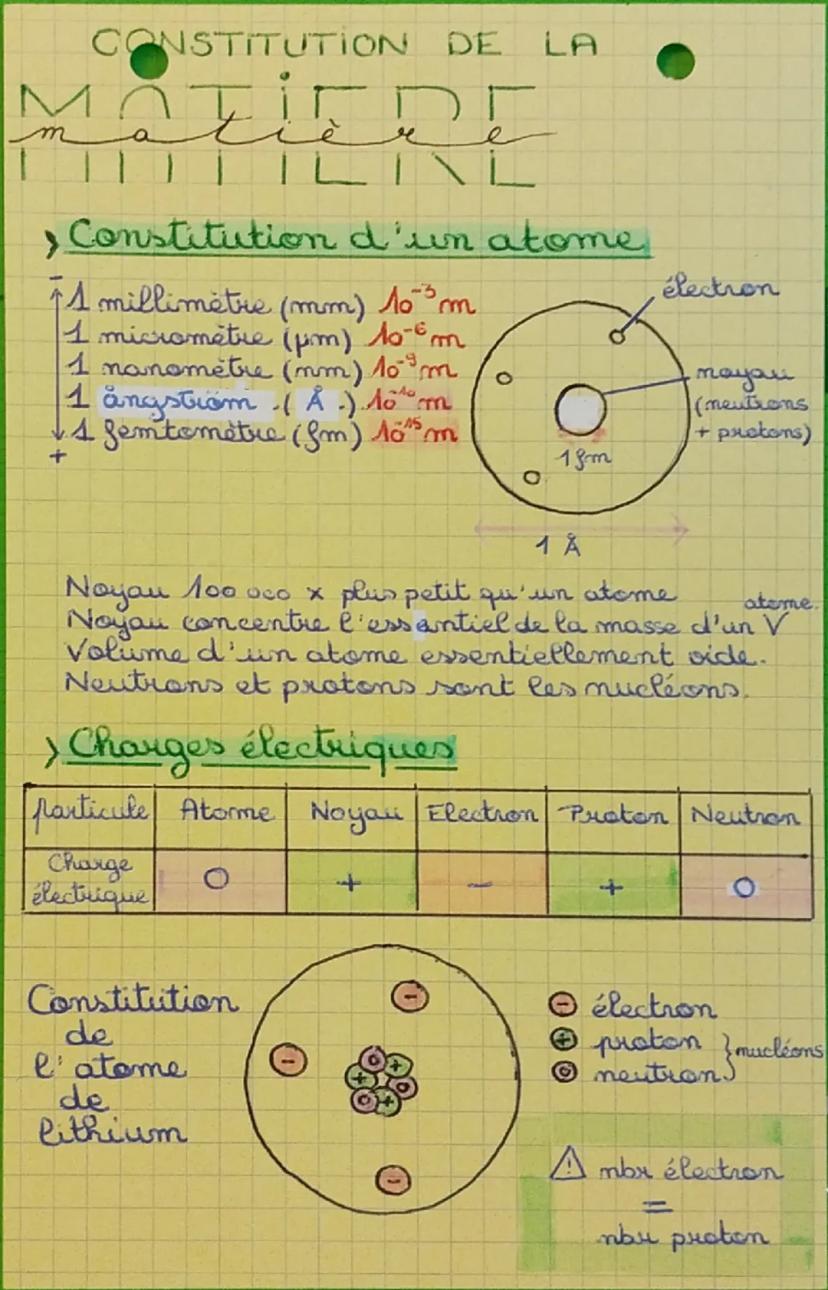 CONSTITUTION DE LA
MATIERE
matière
Constitution d'un atome
-
1 millimètre (mm) 10⁻³ m
1 micromètre (μm) 10⁻⁶ m
1 nanomètre (nm) 10⁻⁹ m
1 ångström (Å) 10⁻¹⁰ m
1 femtomètre (fm) 10⁻¹⁵ m
+
électron
noyau
(neutrons
+ protons)
1 fm
1 Å
Noyau 100 000 x plus petit qu'un atome
Noyau concentre l'essantiel de la masse d'un V atome.
Volume d'un atome essentiellement vide.
Neutrons et protons sont les nucléons.
Charges électriques
particule Atome Noyau Electron Proton Neutron
Charge
électrique O + - + O
Constitution
de
l'atome
de
lithium
- électron
+ proton
o neutron
} nucléons
⚠ nbr électron
=
nbr proton